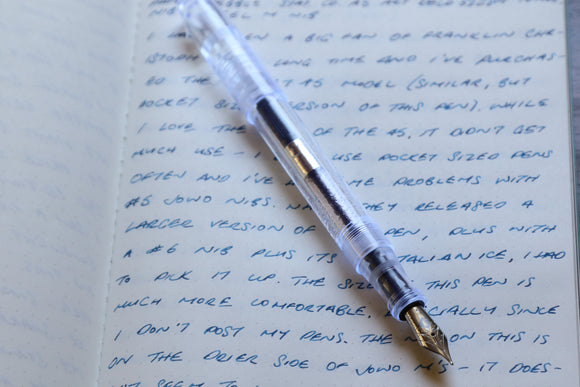 NIB M NIB
I A BIG FAN OF FRANKLIN CHR-
LONG TIME AND I'VE PURCHAS-
ED THE 45 MODEL (SIMILAR, BUT
POCKET VERSION OF THIS PEN). WHILE
I LOVE THE OF THE 45, IT DON'T GET
MUCH USE - I USE POCKET SIZED PENS
OFTEN AND I'VE PROBLEMS WITH
#5 JOWO NIBS. THEY RELEASED A
LARGER VERSION OF PEN, PLUS WITH
A #6 NIB PLUS ITS ITALIAN ICE, I HAD
TO PICK IT UP. THE SIZE THIS PEN IS
MUCH MORE COMFORTABLE, SINCE
I DON'T POST MY PENS. THE ON THIS IS
ON THE DRIER SIDE OF JOWO M'S - IT DOES-
N'T SEEM TO